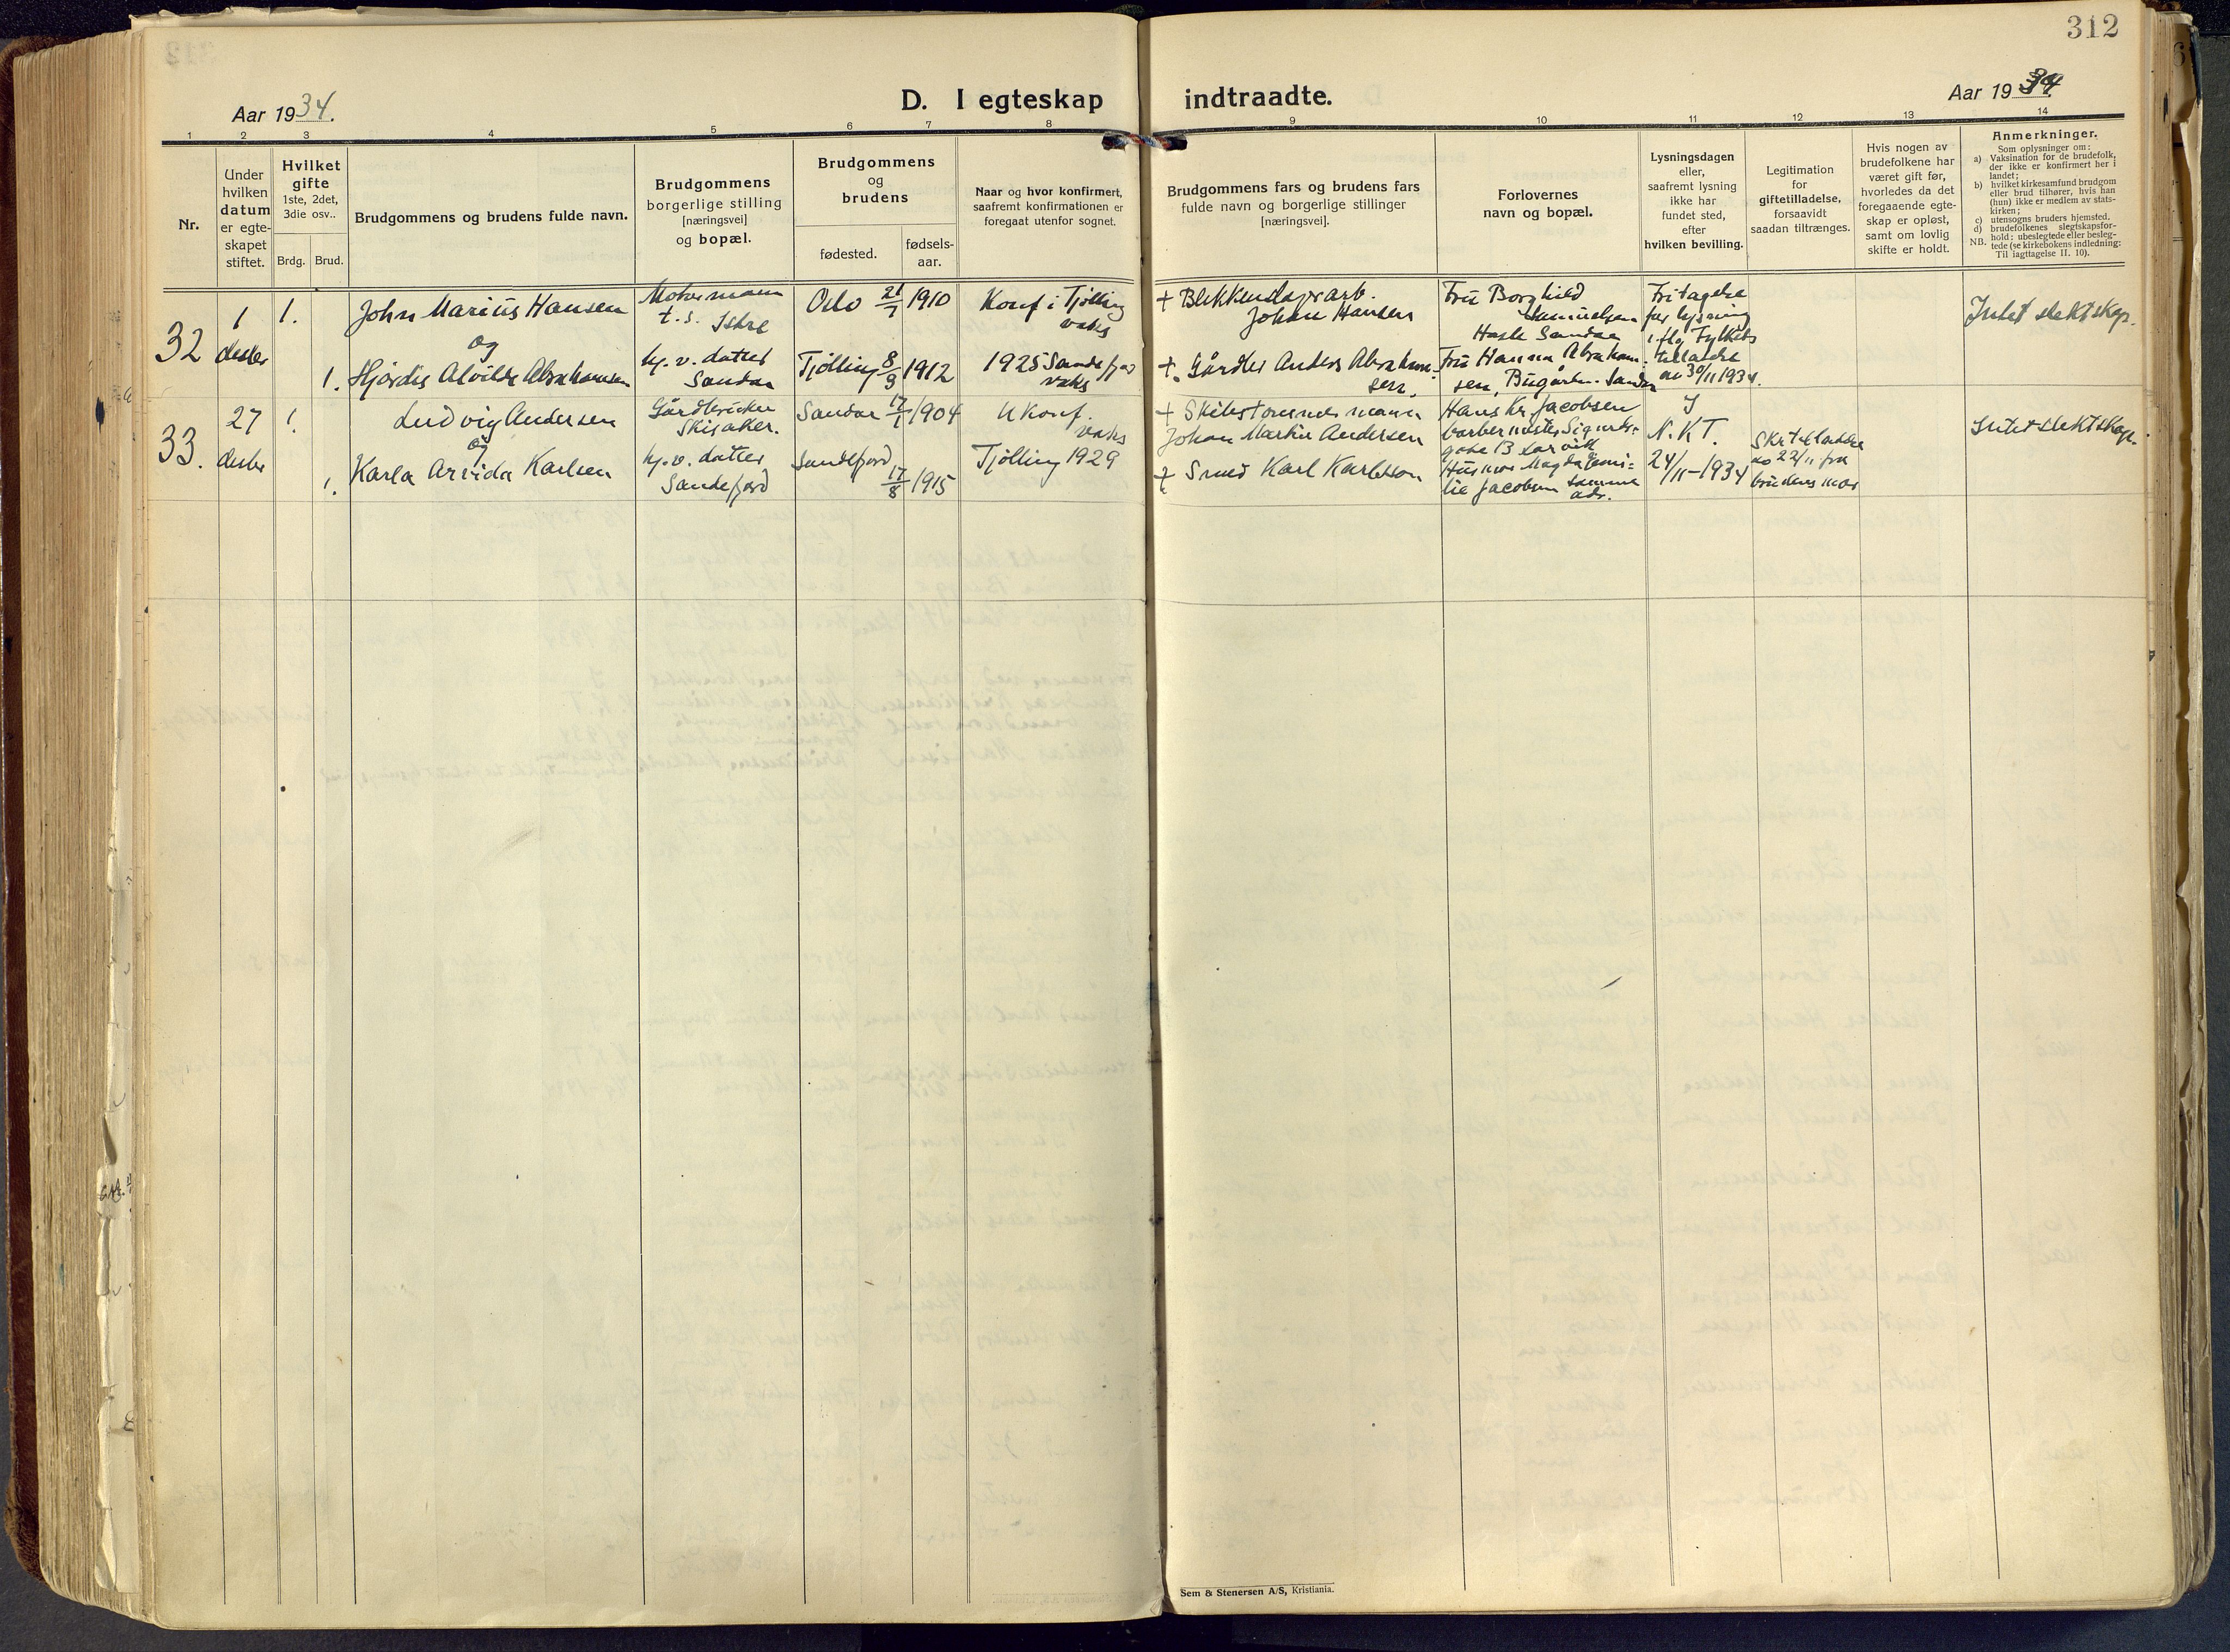 312
Aar 1934.
D. I egteskap indtraadte.
Aar 1934
1 2 3 4 5 6 7 8 9 10 11 12 13 14
Nr.
Under
hvilken
datum
er egte-
skapet
stiftet.
Hvilket
gifte
1ste, 2det,
3die osv..
Brdg. Brud.
Brudgommens og brudens fulde navn.
Brudgommens
borgerlige stilling
[næringsvei]
og bopæl.
Brudgommens
og
brudens
fødested.
fødsels-
aar.
Naar og hvor konfirmert,
saafremt konfirmationen er
foregaat utenfor sognet.
Brudgommens fars og brudens fars
fulde navn og borgerlige stillinger
[næringsvei].
Forlovernes
navn og bopæl.
Lysningsdagen
eller,
saafremt lysning
ikke har
fundet sted,
efter
hvilken bevilling.
Legitimation
for
giftetilladelse,
forsaavidt
saadan tiltrænges.
Hvis nogen av
brudefolkene har
været gift før,
hvorledes da det
foregaaende egte-
skap er opløst,
samt om lovlig
skifte er holdt.
Anmerkninger.
Som oplysninger om:
a) Vaksination for de brudefolk,
der ikke er konfirmert her i
landet;
b) hvilket kirkesamfund brudgom
eller brud tilhører, hvis han
(hun) ikke er medlem av stats-
kirken;
c) utensogns bruders hjemsted.
d) brudefolkenes slegtskapsfor-
hold: ubeslegtede eller besleg-
NB. tede (se kirkebokens indledning:
Til iagttagelse II. 10).
32
1
desbr
1.
John Marius Hansen
og
1. Hjördis Alvilde Abrahamsen
t.s. Istre
hj. v. datter
Sandar
Oslo 21/7 1910
Tjølling 8/9 1912
Konf i Tjølling
vaks
1925 Sandefjord
vaks
+ Blikkenslagerarb.
Johan Hansen
+ Gårdbr Anders Abraham-
sen.
Fru Borghild
Samuelsen
Hasle Sandar
Fru Hanna Abraham-
sen, Bugården. Sandar
Fritagelse
for lysning
iflg Fylkets
tillatelse
av 30/11 1934.
Intet slektskap.
33.
27
desbr
1.
Ludvig Andersen
og
1. Karla Arvida Karlsen
Gårdbruker
Skisaker.
hj. v. datter
Sandefjord
Sandar 17/1 1904
Sandefjord
17/8 1915
Ukonf.
vaks
Tjølling 1929
+ Skibstømmermann
Johan Martin Andersen
+ Smed Karl Karlsson
Hans Kr Jacobsen
barbermester Sigurds-
gate 13 Larvik
Husmor Magda Emi-
lie Jacobsen samme
adr.
I
N. K T.
24/11-1934
Skr tillatelse
av 22/11 fra
brudens mor
Intet slektskap.
Sem & Stenersen A/S, Kristiania.